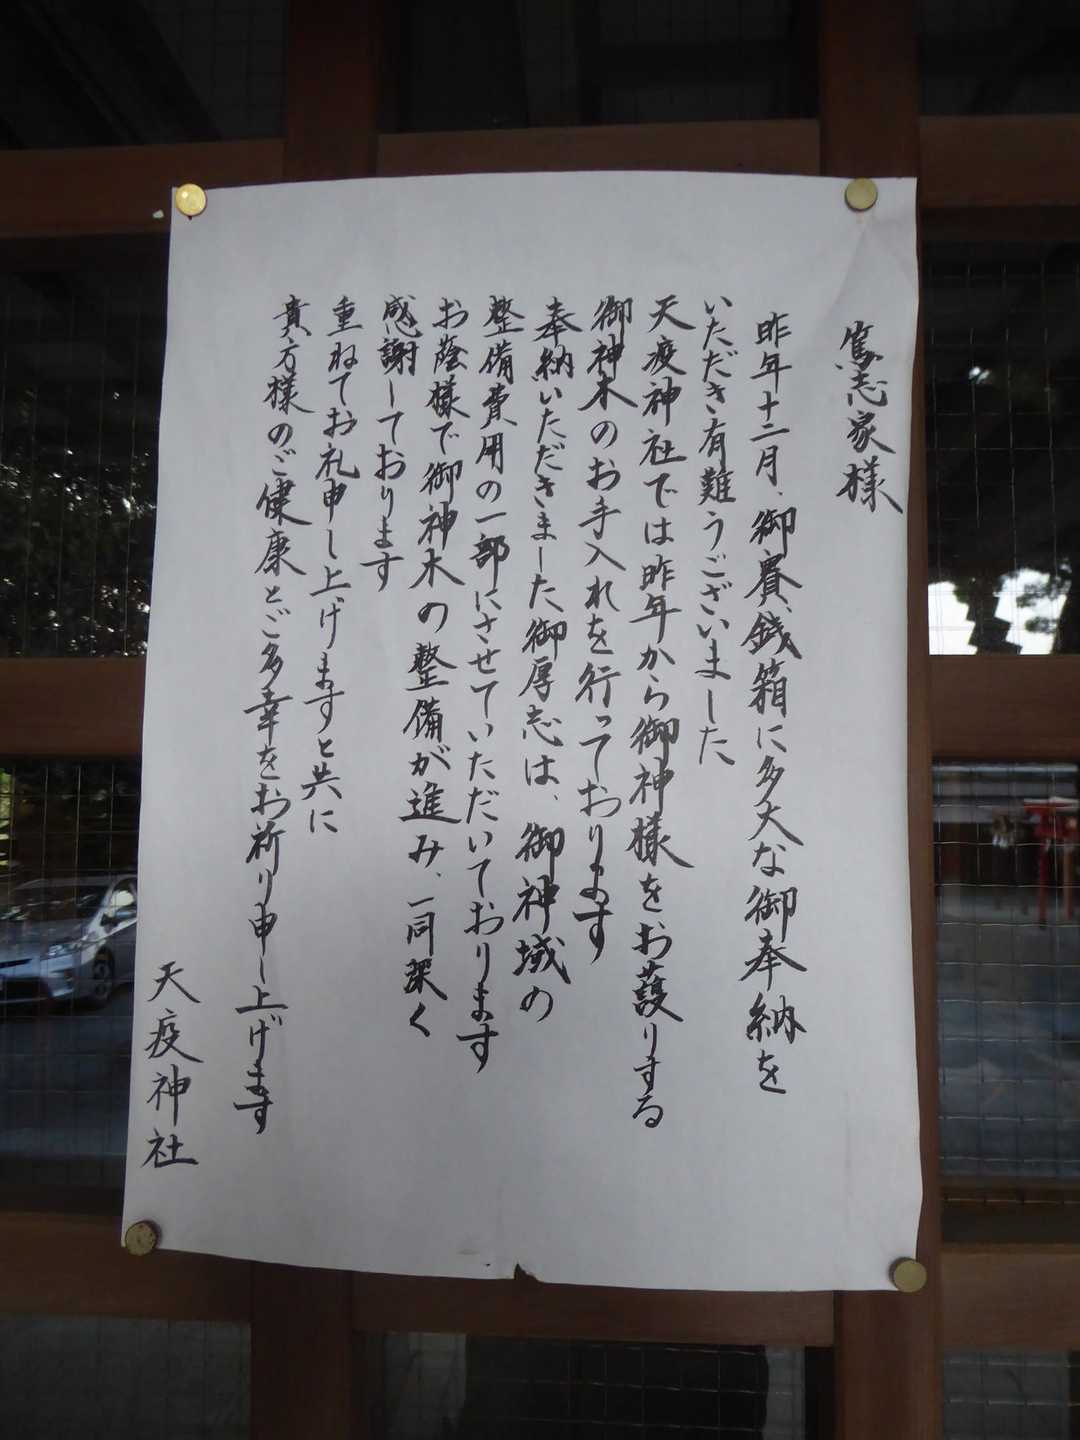 篤志家様
昨年十二月、御賽銭箱に多大な御奉納を
いただき有難うございました
天疫神社では昨年から御神様をお護りする
御神木のお手入れを行っております
奉納いただきました御厚志は、御神域の
整備費用の一部にさせていただいております
お蔭様で御神木の整備が進み、一同深く
感謝しております
重ねてお礼申し上げますと共に
貴方様のご健康とご多幸をお祈り申し上げます
天疫神社